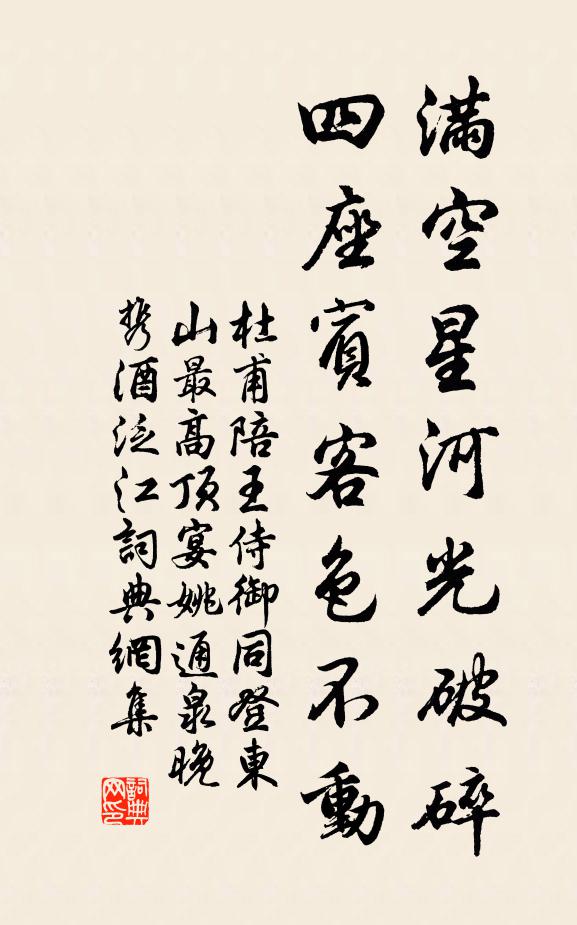 滿空星河光破碎
四座賓客色不動
杜甫陪王侍御同登東
山最高頂宴姚通泉晚
携酒泛江詞典網集
詞典
网印